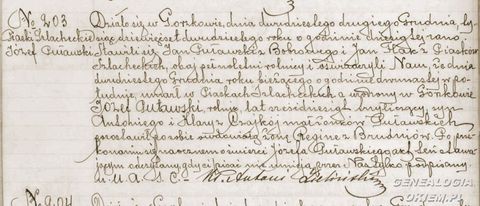 3
No 203 Działo się w Gorzkowie, dnia dwudziestego drugiego Grudnia, ty-
Piaski Szlacheckie siąc dziewięćset dwudziestego roku o godzinie drugiej rano.
Józef Puławski Stawili się Jan Puławski z Bobrowego i Jan Flak z Piasków
Szlacheckich, obaj pełnoletni rolnicy i oświadczyli Nam, że dnia
dwudziestego Grudnia roku bieżącego o godzinie dwunastej w po-
łudnie, umarł w Piaskach Szlacheckich a urodzony w Gorzkowie
Józef Puławski, rolnik, lat sześćdziesiąt trzy mający, syn
Antoniego i Klary z małżonków Puławskich
pozostawił po sobie owdowiałą żonę Reginę z Brudniów. Po prze-
konaniu się naocznem o śmierci Józefa Puławskiego akt ten stawa-
jącym odczytany, gdyż pisać nie umieją przez Nas tylko podpisany.
U. A. S. C. - Ks. Antoni
No 204
GENEALOGIA
OKIEM.PL